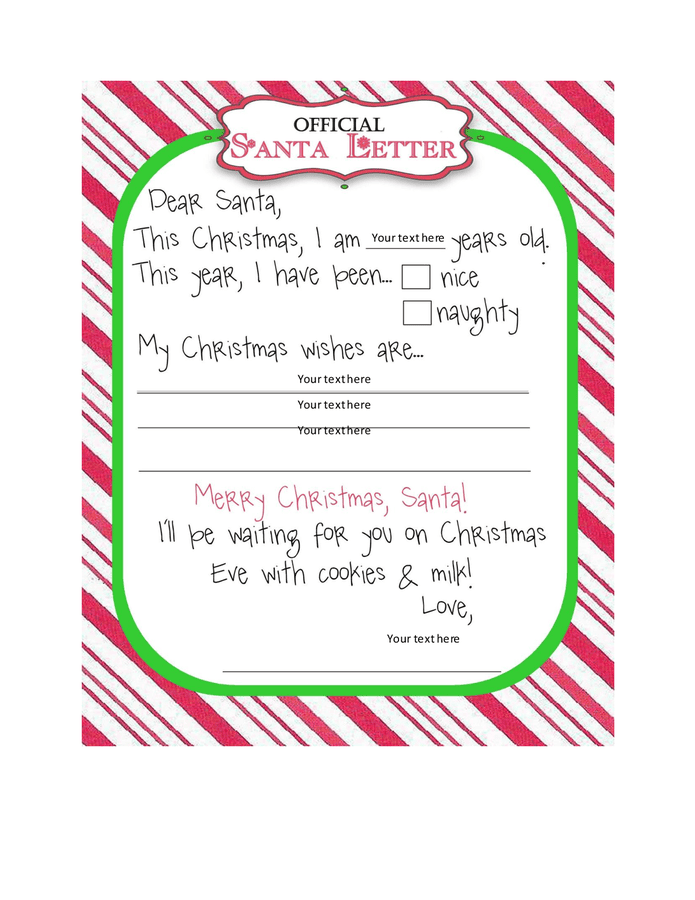 OFFICIAL
SANTA LETTER
Dear Santa,
This Christmas, I am Your text here years old.
This year, I have been... nice
naughty
My Christmas wishes are...
Your text here
Your text here
Your text here
Merry Christmas, Santa!
I'll be waiting for you on Christmas
Eve with cookies & milk!
Love,
Your text here